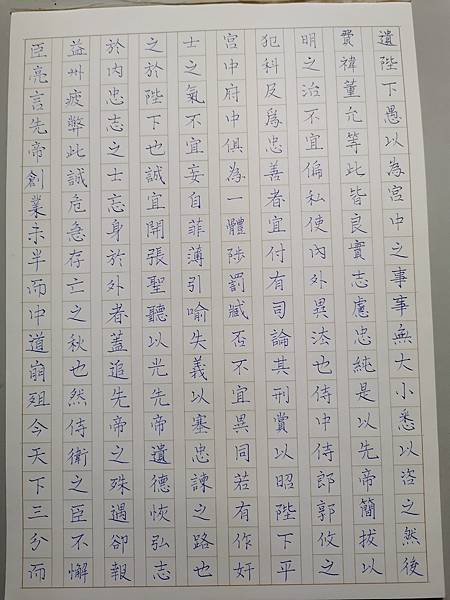 臣亮言先帝創業未半而中道崩殂今天下三分而
益州疲弊此誠危急存亡之秋也然侍衛之臣不懈
於內忠志之士忘身於外者蓋追先帝之殊遇卻報
之於陛下也誠宜開張聖聽以光先帝遺德恢弘志
士之氣不宜妄自菲薄引喻失義以塞忠諫之路也
宮中府中俱為一體陟罰臧否不宜異同若有作奸
犯科及為忠善者宜付有司論其刑賞以昭陛下平
明之治不宜偏私使內外異法也侍中侍郎郭攸之
費禕董允等此皆良實志慮忠純是以先帝簡拔以
遺陛下愚以為宮中之事事無大小悉以咨之然後